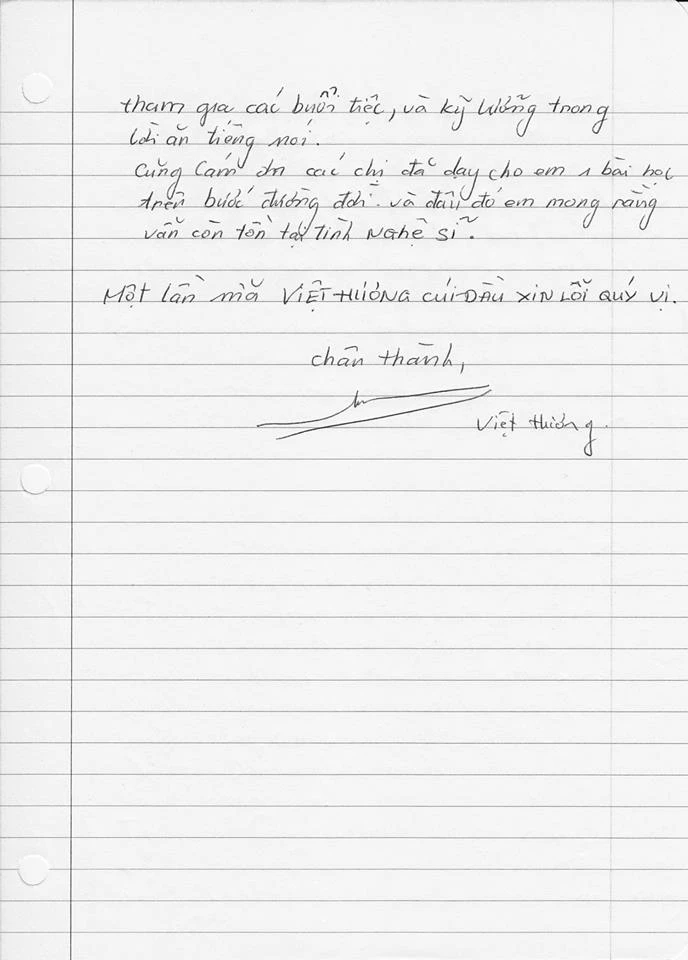 tham gia các buổi tiệc, và kỹ lưỡng trong
lời ăn tiếng nói.
Cũng Cám ơn các chị đã dạy cho em 1 bài học
trên bước đường đời. và đâu đó em mong rằng
vẫn còn tồn tại tình Nghệ sĩ.
Một lần nữa VIỆT HƯƠNG CÚI ĐẦU XIN LỖI QUÝ VỊ.
chân thành,
Việt Hương